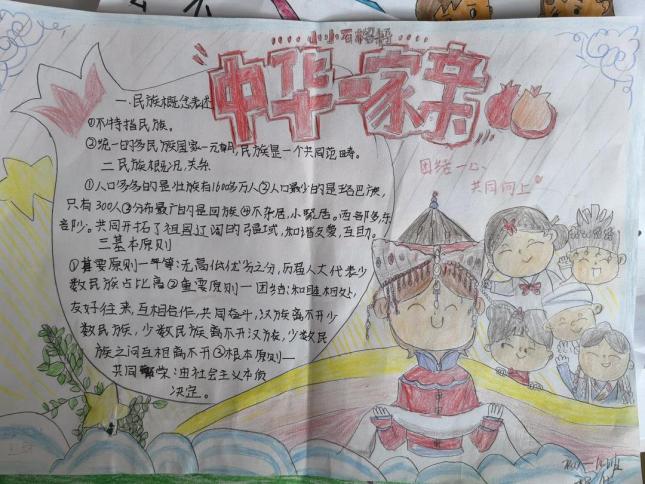 小小石榴籽
中华一家亲
团结一心
共同向上
一.民族概念表述
①不特指民族。
②统一的多民族国家一元明,民族是一个共同范畴。
二民族概况,关系
①人口多多的是壮族有1600多万人②人口最少的是珞巴族,
只有300人③分布最广的是回族④大杂居,小聚居。西部多东
部少。共同开拓了祖国辽阔的疆域,和谐友爱,互助。
三基本原则
①首要原则一平等:无高低优劣之分,历程人大代表少
数民族占比高②重要原则一团结:和睦相处,
友好往来,互相合作,共同奋斗,汉族离不开少
数民族,少数民族离不开汉族,少数民
族之间互相离不开③根本原则—
共同繁荣:由社会主义本质
决定。